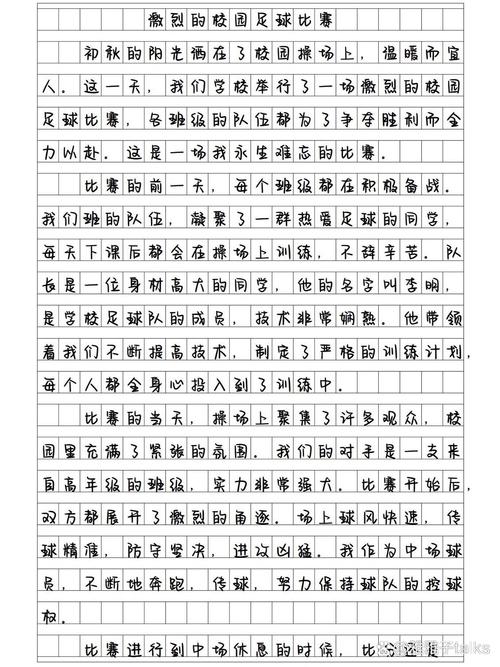 激烈的校园足球比赛
初秋的阳光洒在了校园操场上，温暖而宜
人．这一天，我们学校举行了一场激烈的校园
足球比赛，各班级的队伍都为了争夺胜利而全
力以赴．这是一场我永生难忘的比赛．
比赛的前一天，每个班级都在积极备战．
我们班的队伍，凝聚了一群热爱足球的同学，
每天下课后都会在操场上训练，不辞辛苦．队
长是一位身材高大的同学，他的名字叫李明，
是学校足球队的成员，技术非常娴熟．他带领
着我们不断提高技术，制定了严格的训练计划，
每个人都全身心投入到了训练中．
比赛的当天，操场上聚集了许多观众，校
园里充满了紧张的氛围．我们的对手是一支来
自高年级的班级，实力非常强大．比赛开始后，
双方都展开了激烈的角逐．场上球风快速，传
球精准，防守坚决，进攻凶猛．我作为中场球
员，不断地奔跑，传球，努力保持球队的控球
权．
比赛进行到中场休息的时候，比分还是
talks